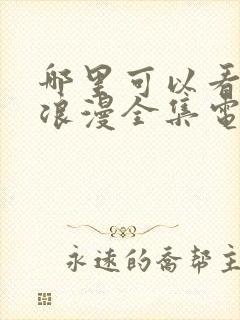 哪里可以看
浪漫全集電
永遠的喬帮主